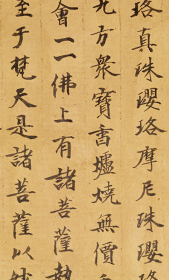 珞真珠瓔珞摩尼珠瓔珞
九方衆寶香爐燒無價
會一一佛上有諸菩薩執
至于梵天是諸菩薩以